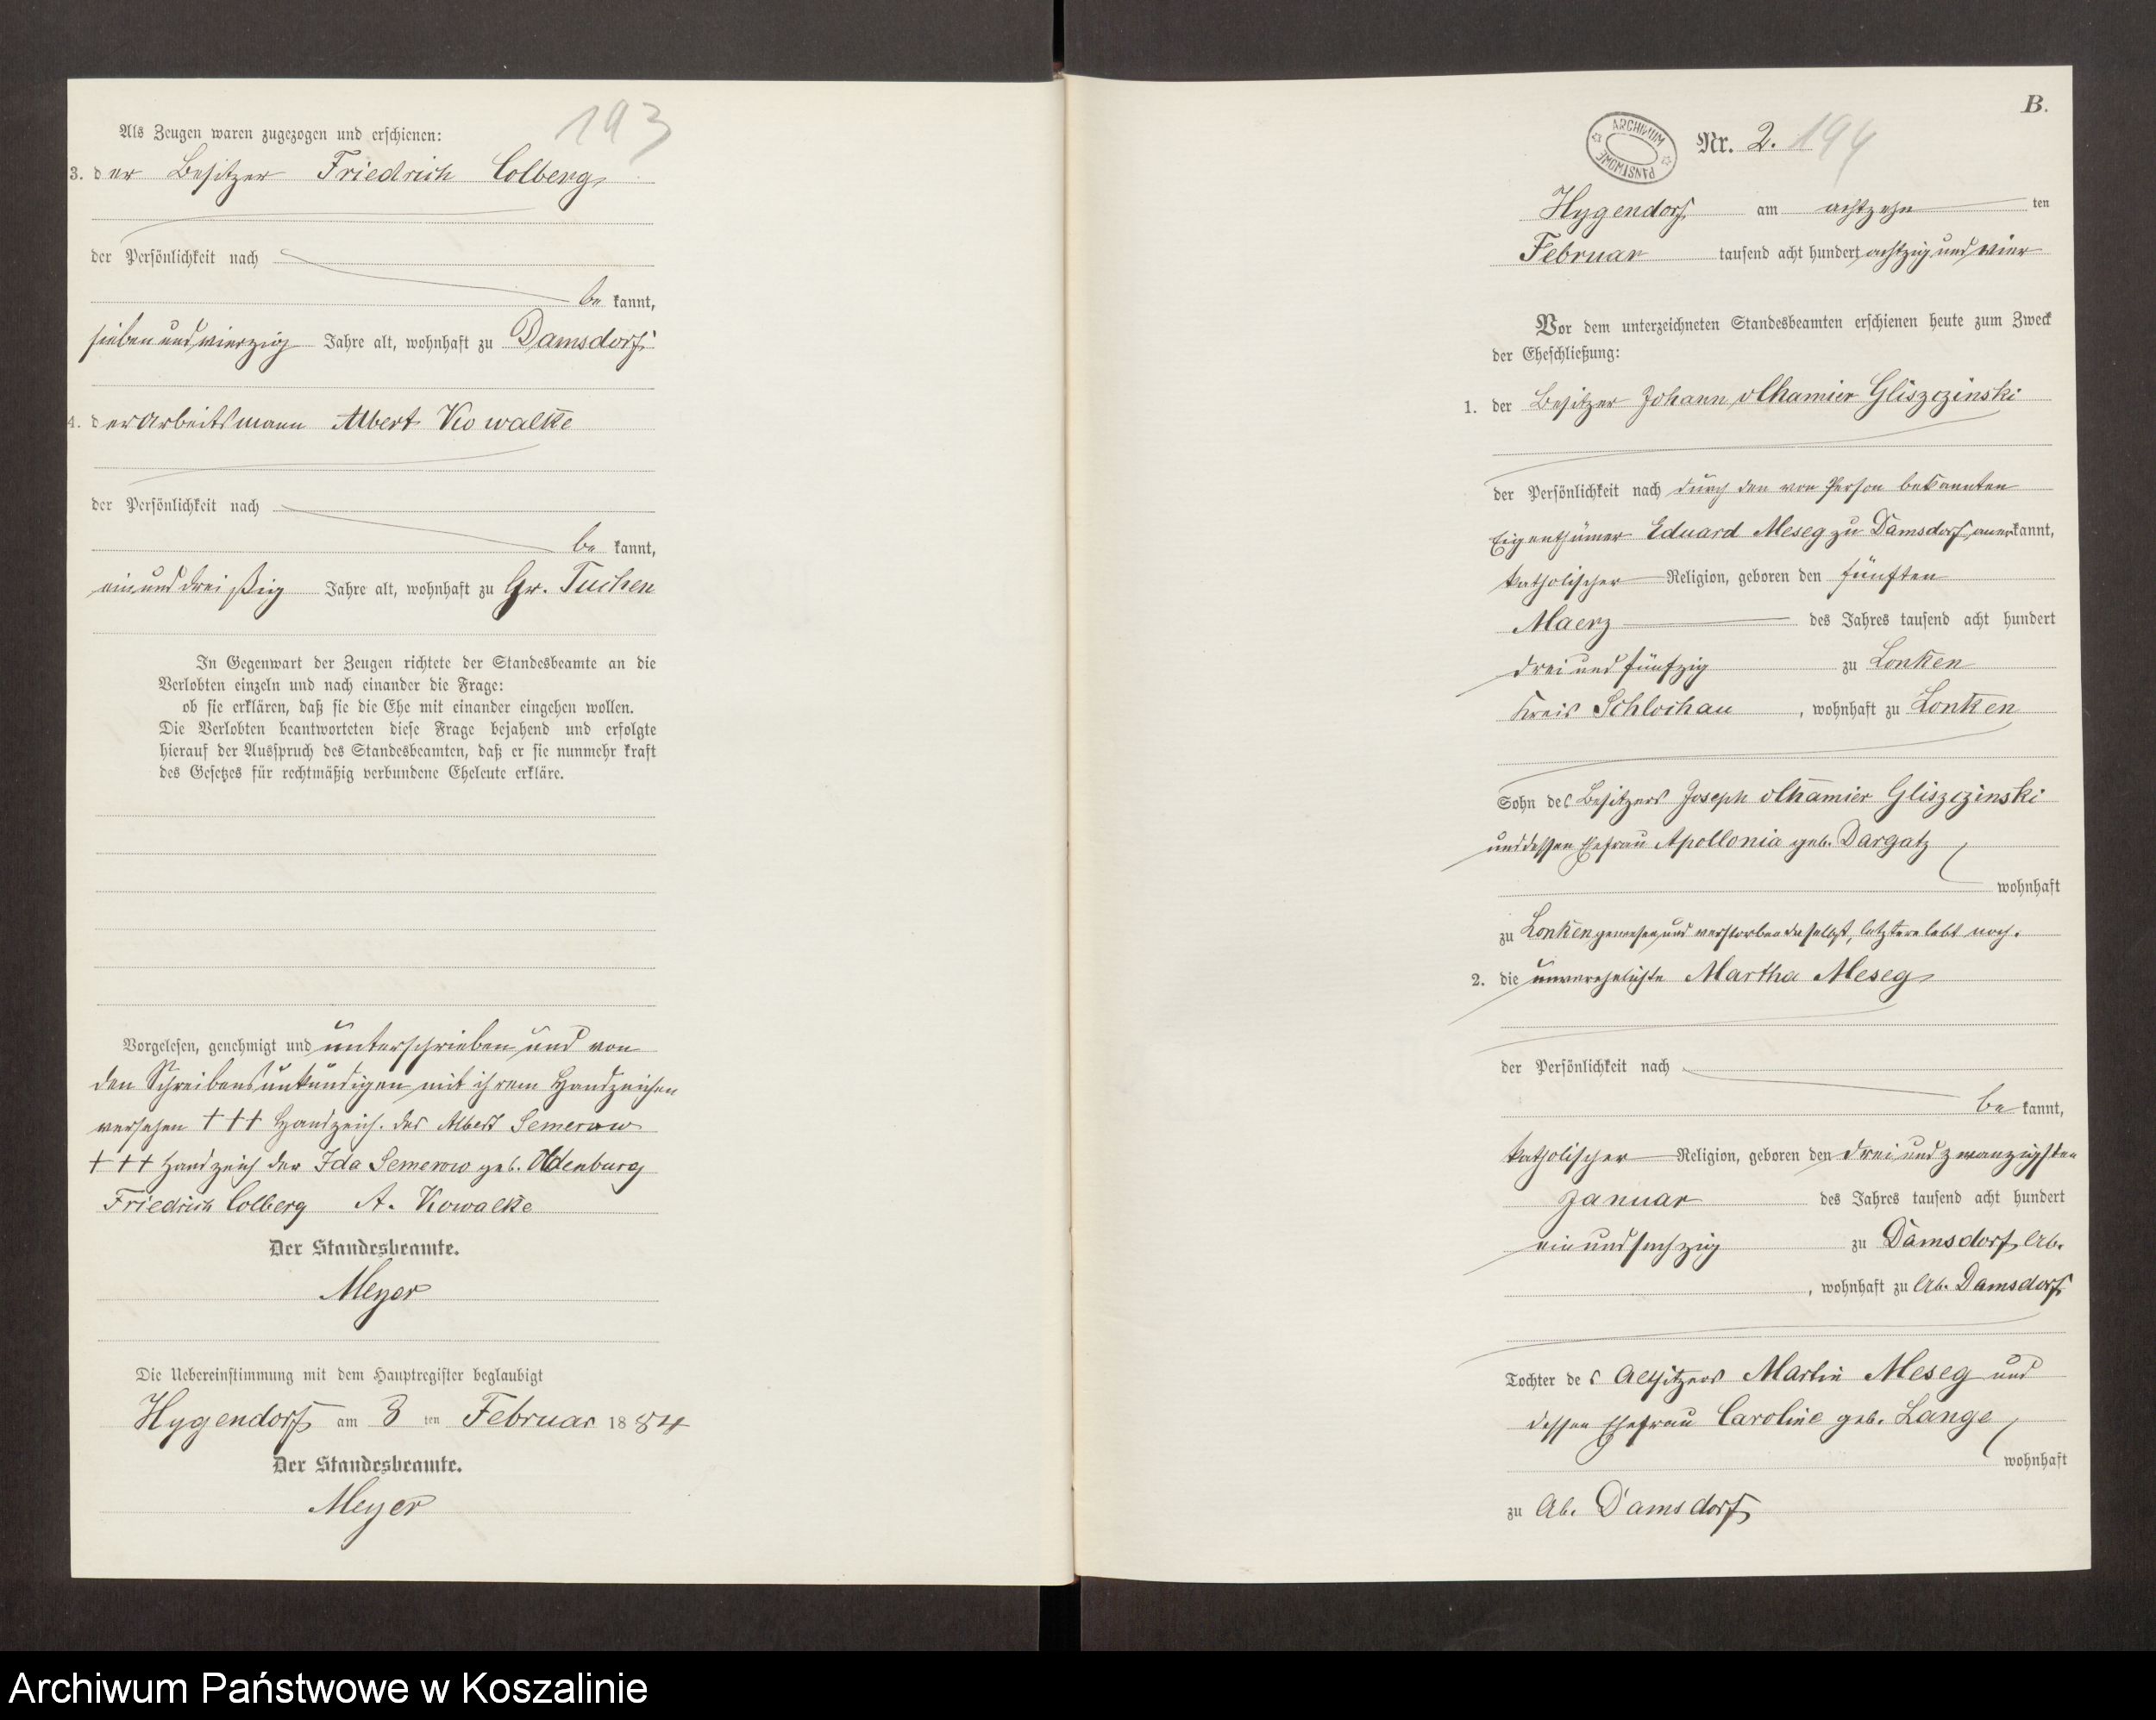 193
Als Zeugen waren zugezogen und erschienen:
3. der Besitzer Friedrich Colberg
der Persönlichkeit nach
be kannt,
sieben und vierzig Jahre alt, wohnhaft zu Damsdorf
4. der Arbeitsmann Albert Kowalke
der Persönlichkeit nach
be kannt,
ein und dreißig Jahre alt, wohnhaft zu Gr. Tuchen
In Gegenwart der Zeugen richtete der Standesbeamte an die
Verlobten einzeln und nach einander die Frage:
ob sie erklären, daß sie die Ehe mit einander eingehen wollen.
Die Verlobten beantworteten diese Frage bejahend und erfolgte
hierauf der Ausspruch des Standesbeamten, daß er sie nunmehr kraft
des Gesetzes für rechtmäßig verbundene Eheleute erkläre.
Vorgelesen, genehmigt und unterschrieben und von
den Schreibensunkundigen mit ihrem Handzeichen
versehen +++ Handzeich. des Albert Semerow
+++ Handzeich der Ida Semerow geb. Oldenburg
Friedrich Colberg A. Kowalke
Der Standesbeamte.
Meyer
Die Uebereinstimmung mit dem Hauptregister beglaubigt
Hygendorf am 8 ten Februar 1884
Der Standesbeamte.
Meyer
B.
ARCHIWUM PAŃSTWOWE
Nr. 2. 194
Hygendorf am achtzehn ten
Februar tausend acht hundert achtzig und vier
Vor dem unterzeichneten Standesbeamten erschienen heute zum Zweck
der Eheschließung:
1. der Besitzer Johann Gliszczinski
der Persönlichkeit nach durch den von Person bekannten
Eigenthümer Eduard Meseg zu Damsdorf anerkannt,
katholischer Religion, geboren den fünften
Maerz des Jahres tausend acht hundert
drei und fünfzig zu Lonken
Kreis Schlochau, wohnhaft zu Lonken
Sohn des Besitzers Joseph Gliszczinski
und dessen Ehefrau Apollonia geb. Dargatz
wohnhaft
zu Lonken gewesen und verstorben daselbst, letztere lebt noch.
2. die unverehelichte Martha Meseg
der Persönlichkeit nach
be kannt,
katholischer Religion, geboren den drei und zwanzigsten
Januar des Jahres tausend acht hundert
ein und sechzig zu Damsdorf Ab.
, wohnhaft zu Ab. Damsdorf
Tochter des Martin Meseg und
dessen Ehefrau Caroline geb. Lange
wohnhaft
zu Ab. Damsdorf
Archiwum Państwowe w Koszalinie